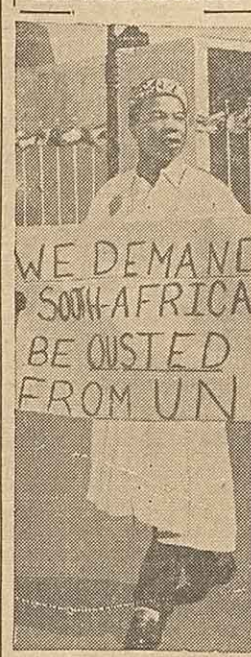 WE DEMAND
SOUTH-AFRICA
BE OUSTED
FROM UN